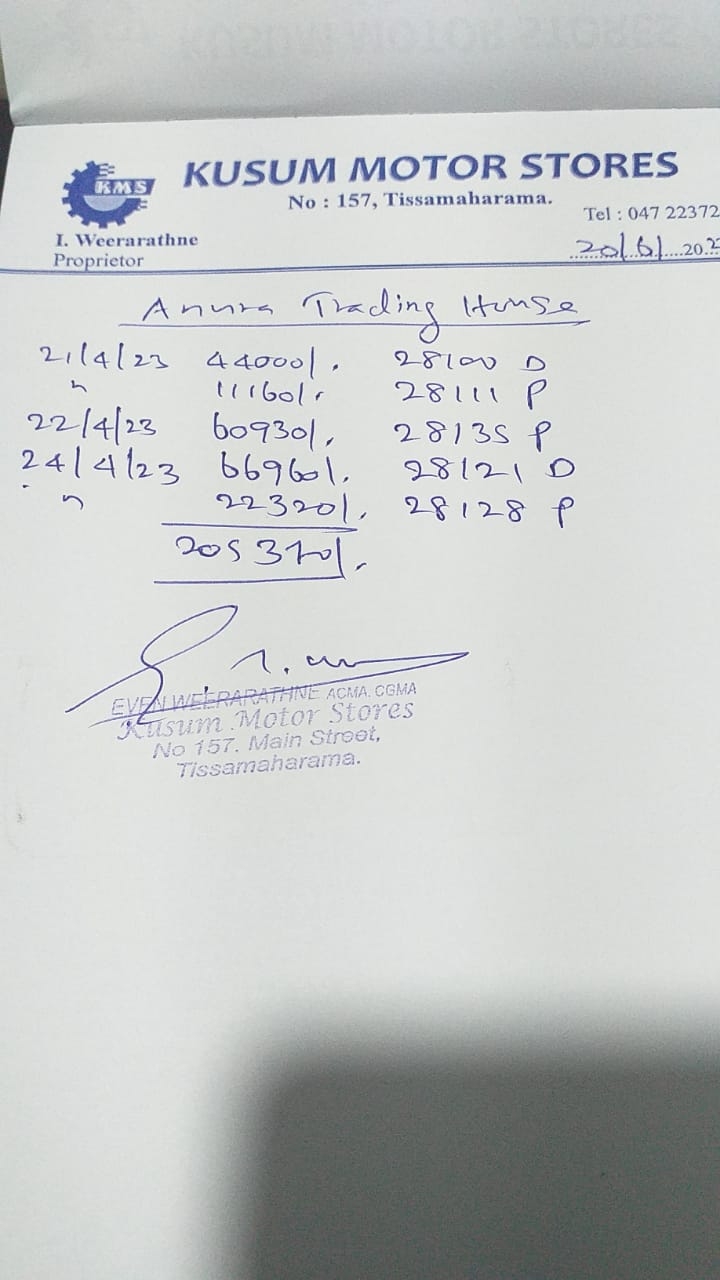 KMS
KUSUM MOTOR STORES
No : 157, Tissamaharama.
Tel : 047 22372
I. Weerarathne
Proprietor
20/6/ 202
Anura Trading House
21/4/23 44000/. 28100 D
" 11160/. 28111 P
22/4/23 60930/. 28135 P
24/4/23 66960/. 28121 D
" 22320/. 28128 P
205370/.
EVEN WEERARATHNE ACMA, CGMA
Kusum Motor Stores
No 157. Main Street,
Tissamaharama.